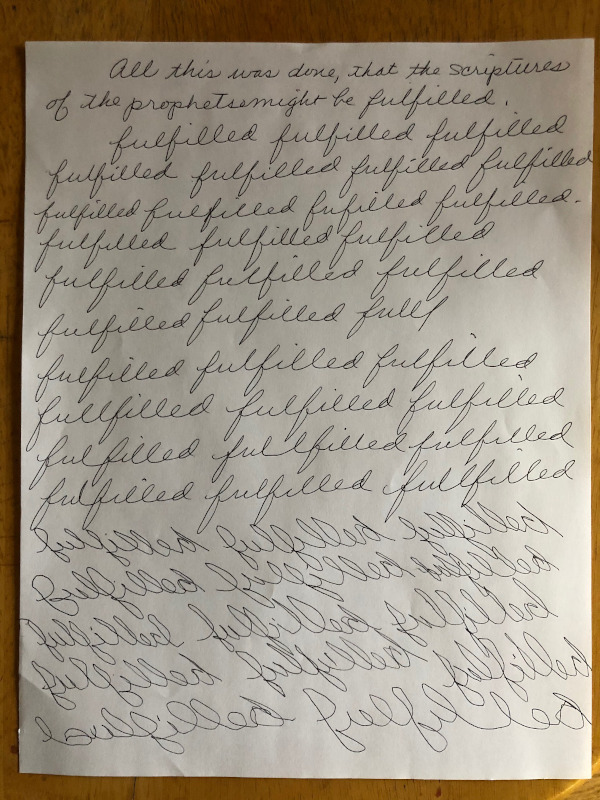 All this was done, that the scriptures
of the prophetsemight be fulfilled.
fulfilled fulfilled fulfilled
fulfilled fulfilled fulfilled fulfilled
fulfilled fulfilled fufilled fulfilled.
fulfilled fulfilled fulfilled
fulfilled fulfilled fulfilled
fulfilled fulfilled full
fulfilled fulfilled fulfilled
fullfilled fulfilled fulfilled
fulfilled fullfilled fulfilled
fulfilled fulfilled fullfilled
fulfilled fulfilled fulfilled
fulfilled fullfilled fulfilled
fulfilled fulfilled fulfilled
fulfilled fulfilled fulfilled
fulfilled fulfilled